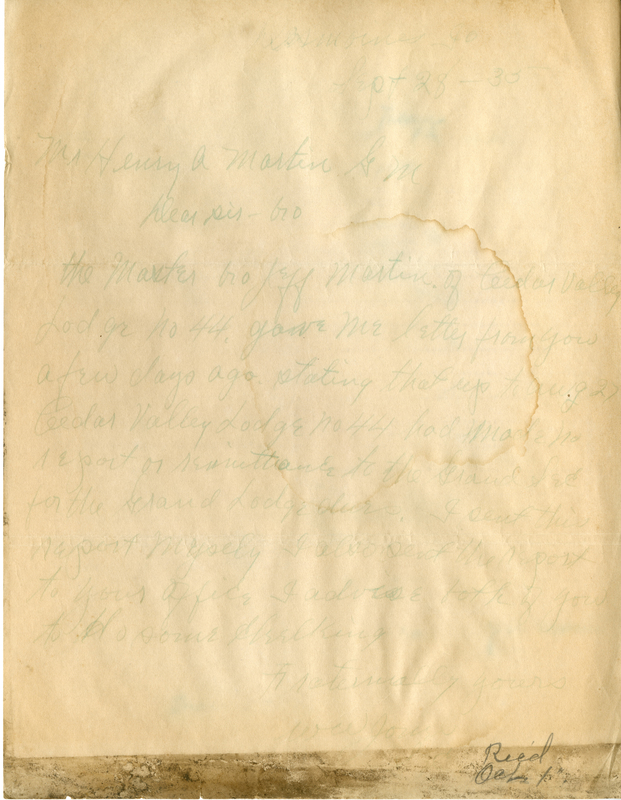 Sept 23 - 35
Mr Henry A Martin. G M
Dear sir - bro
the Master bro Jeff Martin. of Ceedar Valley
Lodge no 44, gave me letter from you
a few days ago. stating that up to Aug 27
Ceedar Valley Lodge no 44 had made no
report or remittance to the Grand Sec
for the Grand Lodge dues. I sent this
report myself I also sent the report
to your office I advise both of you
to do some checking
fraternally yours
Rec'd
Oct